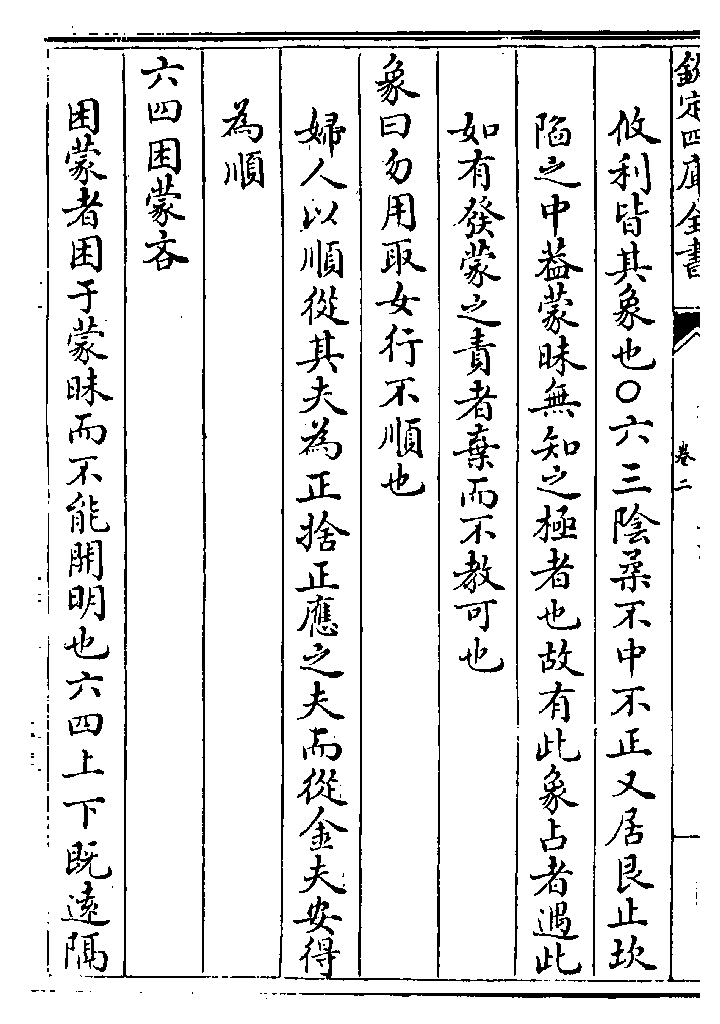 欽定四庫全書
卷二
攸利皆其象也○六三陰柔不中不正又居艮止坎
陷之中葢蒙昧無知之極者也故有此象占者遇此
如有發蒙之責者棄而不教可也
象曰勿用取女行不順也
婦人以順從其夫為正捨正應之夫而從金夫安得
為順
六四困蒙吝
困蒙者困于蒙昧而不能開明也六四上下既遠隔